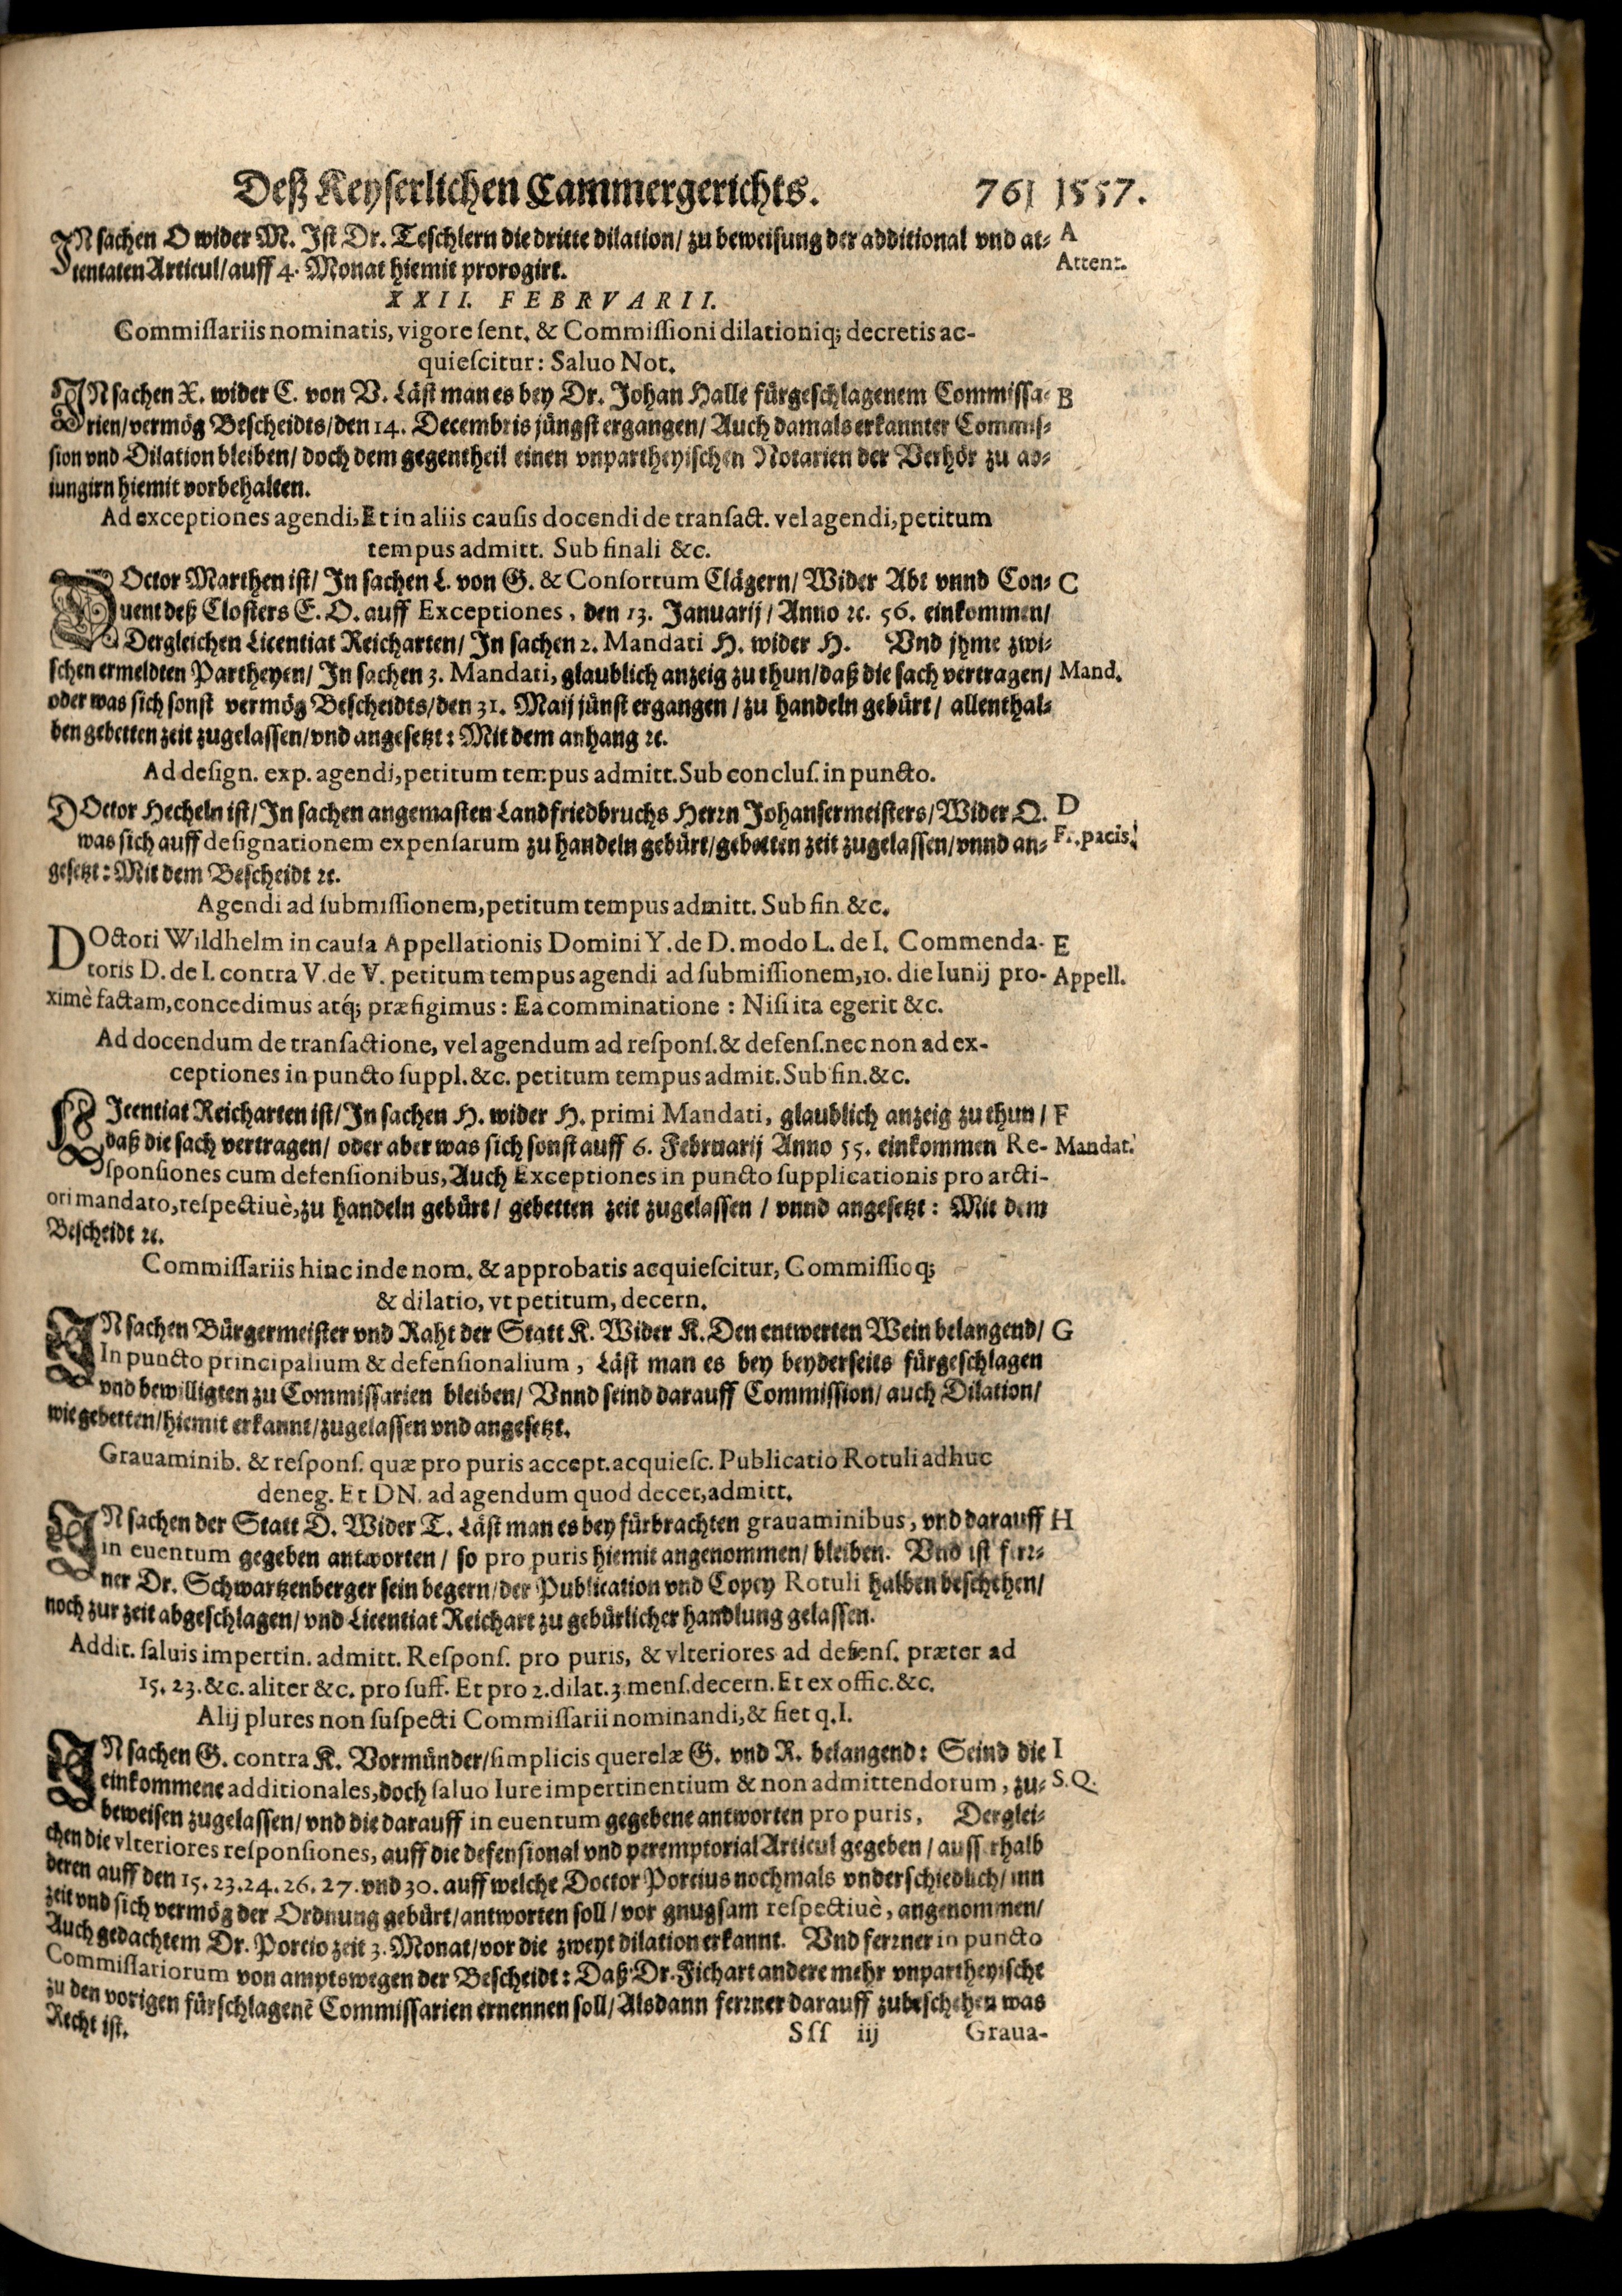 Deß Keyserlichen Cammergerichts. 761 1557.
IN sachen O wider M. Ist Dr. Teschlern die dritte dilation/ zu beweisung der additional vnd at- A
tentaten Articul/ auff 4. Monat hiemit prorogirt. Attent.
XXII. FEBRVARII.
Commissariis nominatis, vigore sent. & Commissioni dilationiq; decretis ac-
quiescitur: Saluo Not.
IN sachen X. wider C. von V. Läst man es bey Dr. Johan Halle fürgeschlagenem Commissa- B
rien/ vermög Bescheidts/ den 14. Decembris jüngst ergangen/ Auch damals erkannter Commis-
sion vnd Dilation bleiben/ doch dem gegentheil einen vnpartheyischen Notarien der Verhör zu ad-
iungirn hiemit vorbehalten.
Ad exceptiones agendi, Et in aliis causis docendi de transact. vel agendi, petitum
tempus admitt. Sub finali &c.
DOctor Marthen ist/ In sachen L. von G. & Consortum Clägern/ Wider Abt vnnd Con- C
uent deß Closters E. O. auff Exceptiones, den 13. Januarij/ Anno ꝛc. 56. einkommen/
Dergleichen Licentiat Reicharten/ In sachen 2. Mandati H. wider H. Vnd jhme zwi-
schen ermeldten Partheyen/ In sachen 3. Mandati, glaublich anzeig zu thun/ daß die sach vertragen/ Mand.
oder was sich sonst vermög Bescheidts/ den 31. Maij jünst ergangen/ zu handeln gebürt/ allenthal-
ben gebetten zeit zugelassen/ vnd angesetzt: Mit dem anhang ꝛc.
Ad design. exp. agendi, petitum tempus admitt. Sub conclus. in puncto.
DOctor Hecheln ist/ In sachen angemasten Landfriedbruchs Herrn Johansermeisters/ Wider Q. D
was sich auff designationem expensarum zu handeln gebürt/ gebetten zeit zugelassen/ vnnd an- Fr. pacis.
gesetzt: Mit dem Bescheidt ꝛc.
Agendi ad submissionem, petitum tempus admitt. Sub fin. &c.
DOctori Wildhelm in causa Appellationis Domini Y. de D. modo L. de I. Commenda- E
toris D. de I. contra V. de V. petitum tempus agendi ad submissionem, 10. die Iunij pro- Appell.
ximè factam, concedimus atq́; præfigimus: Ea comminatione: Nisi ita egerit &c.
Ad docendum de transactione, vel agendum ad respons. & defens. nec non ad ex-
ceptiones in puncto suppl. &c. petitum tempus admit. Sub fin. &c.
LIcentiat Reicharten ist/ In sachen H. wider H. primi Mandati, glaublich anzeig zu thun/ F
daß die sach vertragen/ oder aber was sich sonst auff 6. Februarij Anno 55. einkommen Re- Mandat.
sponsiones cum defensionibus, Auch Exceptiones in puncto supplicationis pro arcti-
ori mandato, respectiuè, zu handeln gebürt/ gebetten zeit zugelassen/ vnnd angesetzt: Mit dem
Bescheidt ꝛc.
Commissariis hinc inde nom. & approbatis acquiescitur, Commissioq;
& dilatio, vt petitum, decern.
IN sachen Bürgermeister vnd Raht der Statt K. Wider K. Den entwerten Wein belangend/ G
In puncto principalium & defensionalium, Läst man es bey beyderseits fürgeschlagen
vnd bewilligten zu Commissarien bleiben/ Vnnd seind darauff Commission/ auch Dilation/
wie gebetten/ hiemit erkannt/ zugelassen vnd angesetzt.
Grauaminib. & respons. quæ pro puris accept. acquiesc. Publicatio Rotuli adhuc
deneg. Et DN. ad agendum quod decet, admitt.
IN sachen der Statt D. Wider T. Läst man es bey fürbrachten grauaminibus, vnd darauff H
in euentum gegeben antworten/ so pro puris hiemit angenommen/ bleiben. Vnd ist ferr-
ner Dr. Schwartzenberger sein begern/ der Publication vnd Copey Rotuli halben beschehen/
noch zur zeit abgeschlagen/ vnd Licentiat Reichart zu gebürlicher handlung gelassen.
Addit. saluis impertin. admitt. Respons. pro puris, & vlteriores ad defens. præter ad
15. 23. &c. aliter &c. pro suff. Et pro 2. dilat. 3. mens. decern. Et ex offic. &c.
Alij plures non suspecti Commissarii nominandi, & fiet q. I.
IN sachen G. contra K. Vormünder/ simplicis querelæ G. vnd R. belangend: Seind die I
einkommene additionales, doch saluo Iure impertinentium & non admittendorum, zu- S. Q.
beweisen zugelassen/ vnd die darauff in euentum gegebene antworten pro puris, Derglei-
chen die vlteriores responsiones, auff die defensional vnd peremptorial Articul gegeben/ ausserthalb
deren auff den 15. 23. 24. 26. 27. vnd 30. auff welche Doctor Porcius nochmals vnderschiedlich/ inn
zeit vnd sich vermög der Ordnung gebürt/ antworten soll/ vor gnugsam respectiuè, angenommen/
Auch gedachtem Dr. Porcio zeit 3. Monat/ vor die zweyt dilation erkannt. Vnd ferrner in puncto
Commissariorum von amptswegen der Bescheidt: Daß Dr. Fichart andere mehr vnpartheyische
zu den vorigen fürschlagenē Commissarien ernennen soll/ Alsdann ferrner darauff zubeschehen was
Recht ist.
Sss iij Graua-